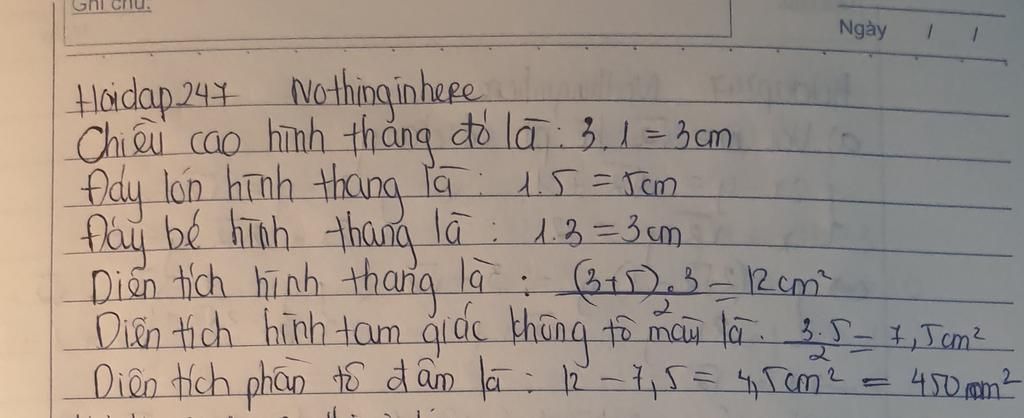 Ghi chú:
Ngày / /
Hoidap247 Nothinginhere
Chiều cao hình thang đó là: 3.1=3cm
Đáy lớn hình thang là: 1.5=5cm
Đáy bé hình thang là: 1.3=3cm
Diện tích hình thang là: (3+5).3/2=12cm²
Diện tích hình tam giác không tô màu là: 3.5/2=7,5cm²
Diện tích phần tô đậm là: 12-7,5=4,5cm²=450mm²